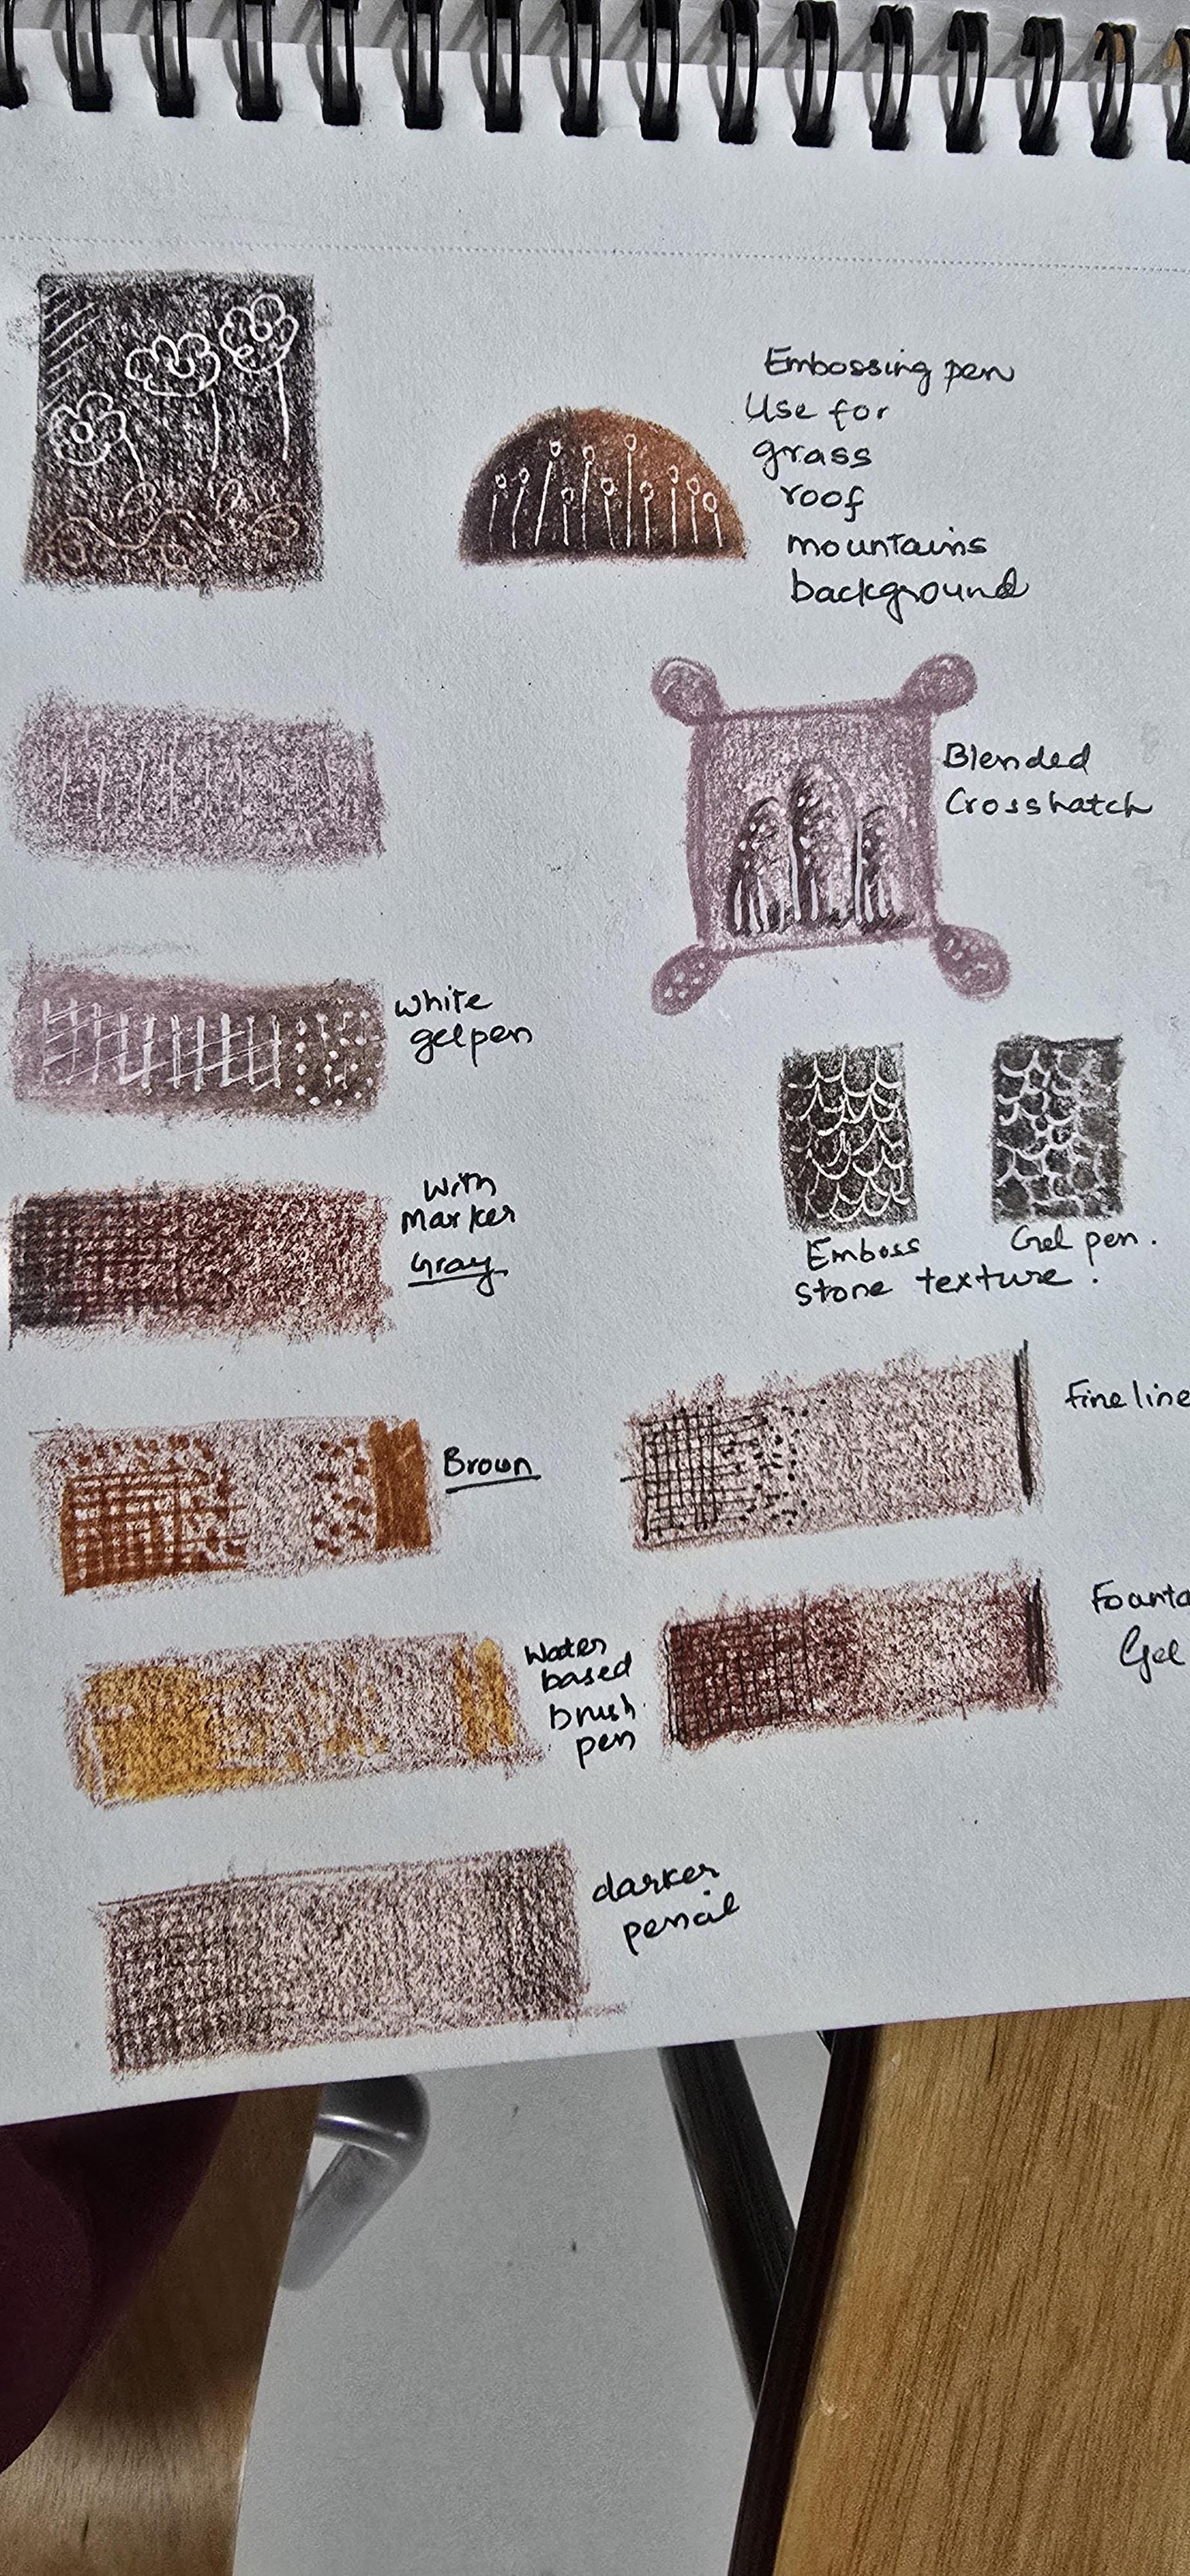 Embossing pen
Use for
grass
roof
mountains
background
Blended
Crosshatch
White
gelpen
With
Marker
Gray
Emboss
Gel pen.
Stone texture.
Fine line
Brown
Founta
Gel
Water
based
brush
pen
darker
pencil